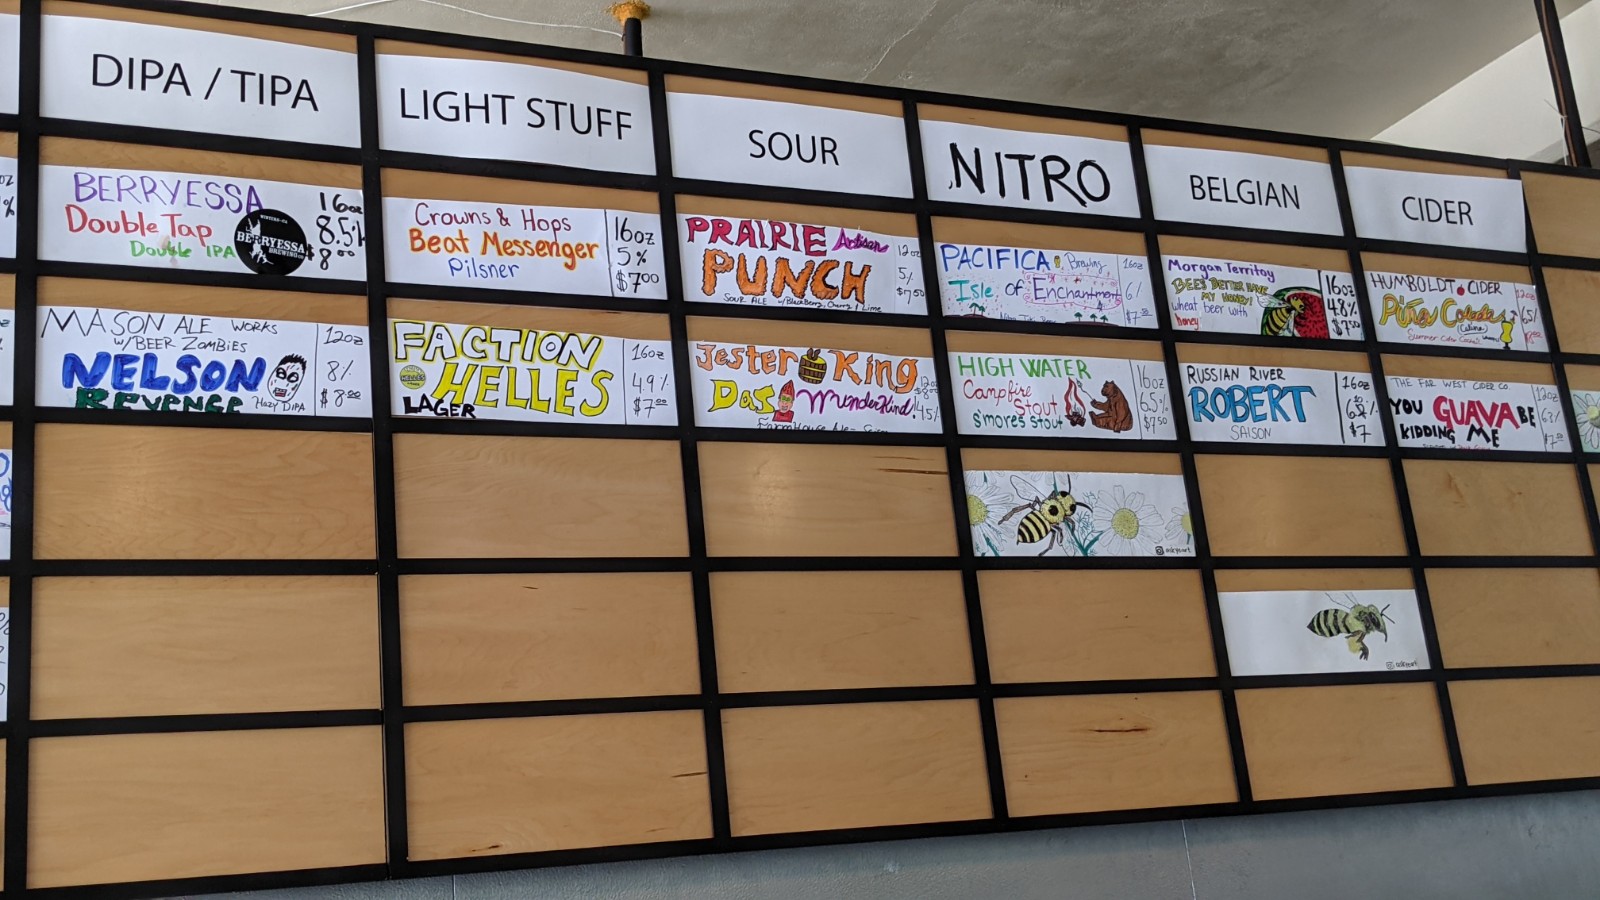 DIPA / TIPA
BERRYESSA
Double Tap
Double IPA
WINTERS-CA
BERRYESSA
BREWING CO
16oz
8.5%
$8.00
MASON ALE WORKS
W/BEER ZOMBIES
NELSON
REVENGE
Hazy DIPA
12oz
8%
$8.00
LIGHT STUFF
Crowns & Hops
Beat Messenger
Pilsner
16oz
5%
$7.00
FACTION
HELLES
LAGER
16oz
4.9%
$7.00
SOUR
PRAIRIE Artisan
PUNCH
SOUR ALE w/BlackBerry, Cherry & Lime
12oz
5%
$7.50
Jester King
Das Wunderkind
FarmHouse Ale
12oz
4.5%
NITRO
PACIFICA Brewing
Isle of Enchantment
16oz
6%
HIGH WATER
Campfire
Stout
S'mores stout
16oz
6.5%
$7.50
BELGIAN
Morgan Territory
BEES BETTER HAVE
MY HONEY!
wheat beer with
honey
16oz
4.8%
$7.50
RUSSIAN RIVER
ROBERT
SAISON
16oz
$7
CIDER
HUMBOLDT CIDER
Piña Colada
12oz
THE FAR WEST CIDER CO.
YOU GUAVA BE
KIDDING ME
12oz
6.3%